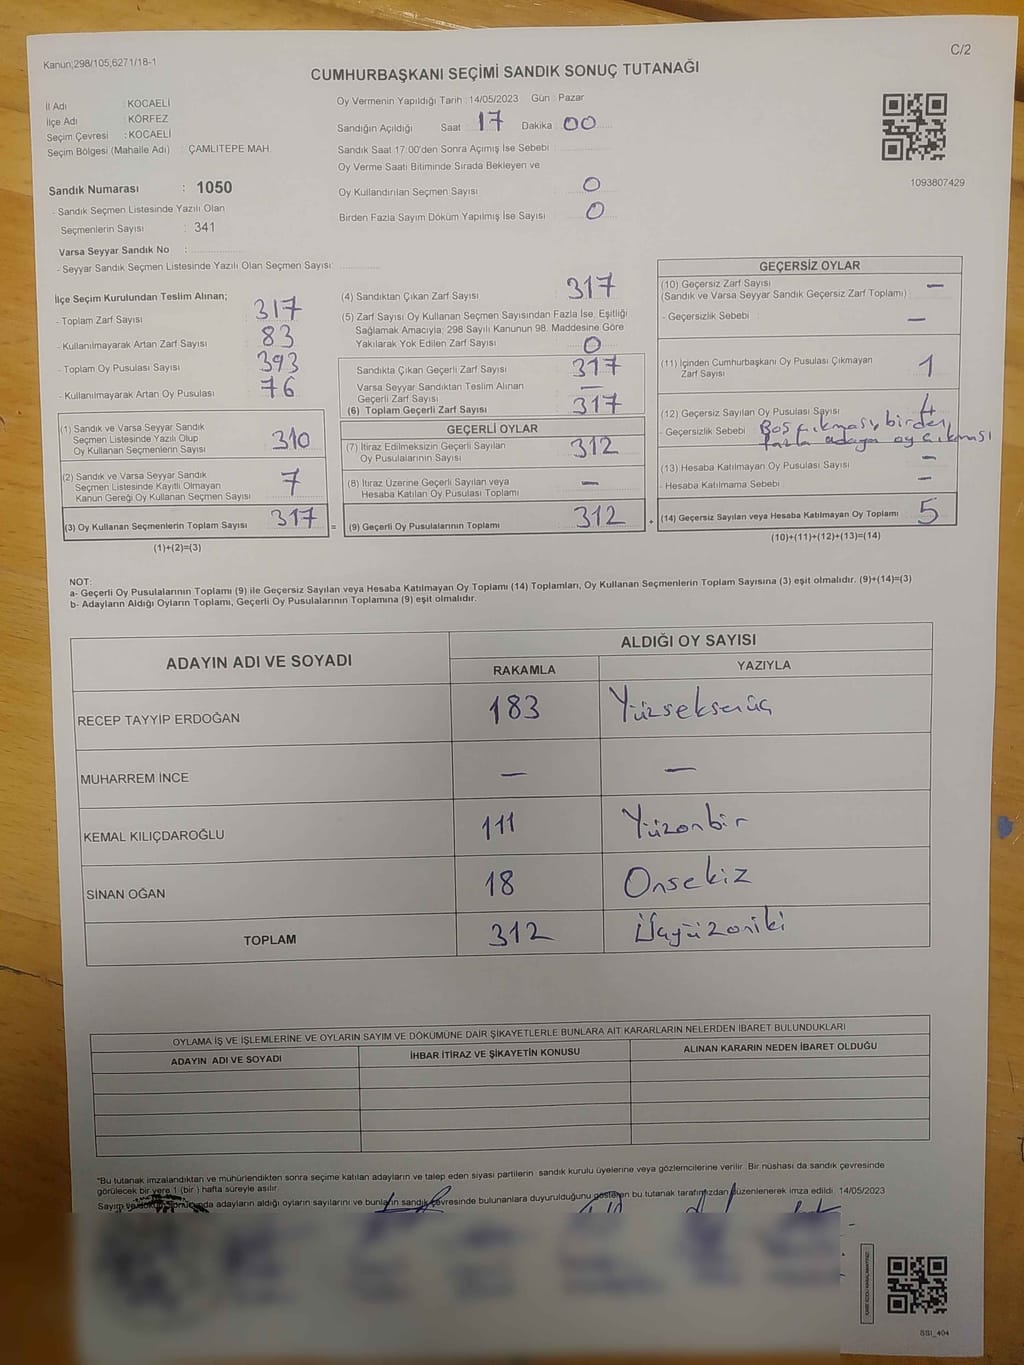 Kanun;298/105,6271/18-1
C/2
CUMHURBAŞKANI SEÇİMİ SANDIK SONUÇ TUTANAĞI
İl Adı : KOCAELİ
İlçe Adı : KÖRFEZ
Seçim Çevresi : KOCAELİ
Seçim Bölgesi (Mahalle Adı) : ÇAMLITEPE MAH.
Sandık Numarası : 1050
- Sandık Seçmen Listesinde Yazılı Olan
Seçmenlerin Sayısı : 341
Varsa Seyyar Sandık No :
- Seyyar Sandık Seçmen Listesinde Yazılı Olan Seçmen Sayısı:
Oy Vermenin Yapıldığı Tarih : 14/05/2023 Gün : Pazar
Sandığın Açıldığı Saat : 17 Dakika : 00
Sandık Saat 17:00'den Sonra Açımış İse Sebebi :
Oy Verme Saati Bitiminde Sırada Bekleyen ve
Oy Kullandırılan Seçmen Sayısı : 0
Birden Fazla Sayım Döküm Yapılmış İse Sayısı : 0
1093807429
İlçe Seçim Kurulundan Teslim Alınan;
- Toplam Zarf Sayısı : 317
- Kullanılmayarak Artan Zarf Sayısı : 83
- Toplam Oy Pusulası Sayısı : 393
- Kullanılmayarak Artan Oy Pusulası : 76
(1) Sandık ve Varsa Seyyar Sandık
Seçmen Listesinde Yazılı Olup
Oy Kullanan Seçmenlerin Sayısı : 310
(2) Sandık ve Varsa Seyyar Sandık
Seçmen Listesinde Kayıtlı Olmayan
Kanun Gereği Oy Kullanan Seçmen Sayısı : 7
(3) Oy Kullanan Seçmenlerin Toplam Sayısı : 317
(1)+(2)=(3)
=
(4) Sandıktan Çıkan Zarf Sayısı : 317
(5) Zarf Sayısı Oy Kullanan Seçmen Sayısından Fazla İse, Eşitliği
Sağlamak Amacıyla; 298 Sayılı Kanunun 98. Maddesine Göre
Yakılarak Yok Edilen Zarf Sayısı : 0
Sandıkta Çıkan Geçerli Zarf Sayısı : 317
Varsa Seyyar Sandıktan Teslim Alınan
Geçerli Zarf Sayısı : —
(6) Toplam Geçerli Zarf Sayısı : 317
GEÇERLİ OYLAR
(7) İtiraz Edilmeksizin Geçerli Sayılan
Oy Pusulalarının Sayısı : 312
(8) İtiraz Üzerine Geçerli Sayılan veya
Hesaba Katılan Oy Pusulası Toplamı : —
(9) Geçerli Oy Pusulalarının Toplamı : 312
+
GEÇERSİZ OYLAR
(10) Geçersiz Zarf Sayısı
(Sandık ve Varsa Seyyar Sandık Geçersiz Zarf Toplamı) : —
- Geçersizlik Sebebi : —
(11) İçinden Cumhurbaşkanı Oy Pusulası Çıkmayan
Zarf Sayısı : 1
(12) Geçersiz Sayılan Oy Pusulası Sayısı : 4
- Geçersizlik Sebebi : Boş çıkması, birden
fazla adaya oy çıkması
(13) Hesaba Katılmayan Oy Pusulası Sayısı : —
- Hesaba Katılmama Sebebi : —
(14) Geçersiz Sayılan veya Hesaba Katılmayan Oy Toplamı : 5
(10)+(11)+(12)+(13)=(14)
NOT:
a- Geçerli Oy Pusulalarının Toplamı (9) ile Geçersiz Sayılan veya Hesaba Katılmayan Oy Toplamı (14) Toplamları, Oy Kullanan Seçmenlerin Toplam Sayısına (3) eşit olmalıdır. (9)+(14)=(3)
b- Adayların Aldığı Oyların Toplamı, Geçerli Oy Pusulalarının Toplamına (9) eşit olmalıdır.
ADAYIN ADI VE SOYADI
ALDIĞI OY SAYISI
RAKAMLA YAZIYLA
RECEP TAYYİP ERDOĞAN 183 Yüzseksenüç
MUHARREM İNCE — —
KEMAL KILIÇDAROĞLU 111 Yüzonbir
SİNAN OĞAN 18 Onsekiz
TOPLAM 312 Üçyüzoniki
OYLAMA İŞ VE İŞLEMLERİNE VE OYLARIN SAYIM VE DÖKÜMÜNE DAİR ŞİKAYETLERLE BUNLARA AİT KARARLARIN NELERDEN İBARET BULUNDUKLARI
ADAYIN ADI VE SOYADI İHBAR İTİRAZ VE ŞİKAYETİN KONUSU ALINAN KARARIN NEDEN İBARET OLDUĞU
*Bu tutanak imzalandıktan ve mühürlendikten sonra seçime katılan adayların ve talep eden siyasi partilerin sandık kurulu üyelerine veya gözlemcilerine verilir. Bir nüshası da sandık çevresinde
görülecek bir yere 1 (bir ) hafta süreyle asılır.
Sayım ve döküm sonucunda adayların aldığı oyların sayılarını ve bunların sandık çevresinde bulunanlara duyurulduğunu gösteren bu tutanak tarafımızdan düzenlenerek imza edildi. 14/05/2023
SSİ_404